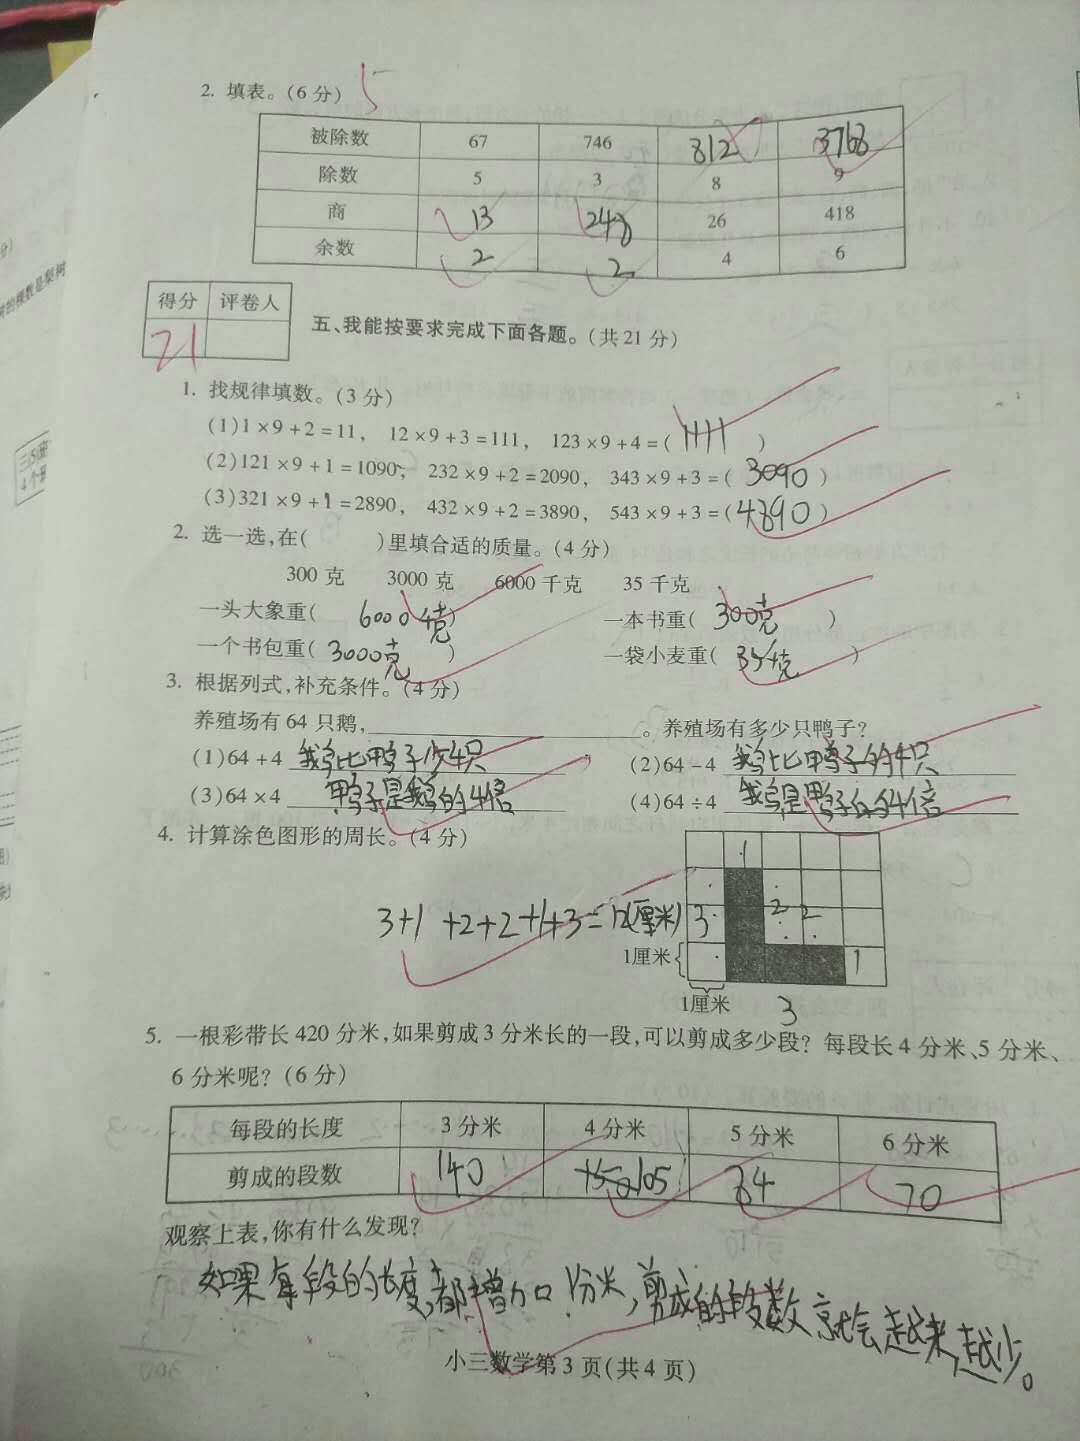 2. 填表。(6分) 5
被除数 67 746 812 3768
除数 5 3 8 9
商 13 248 26 418
余数 2 2 4 6
得分 评卷人
21
五、我能按要求完成下面各题。(共21分)
1. 找规律填数。(3分)
(1)1×9+2=11, 12×9+3=111, 123×9+4=( 1111 )
(2)121×9+1=1090, 232×9+2=2090, 343×9+3=( 3090 )
(3)321×9+1=2890, 432×9+2=3890, 543×9+3=( 4890 )
2. 选一选,在( )里填合适的质量。(4分)
300克 3000克 6000千克 35千克
一头大象重( 6000千克 ) 一本书重( 300克 )
一个书包重( 3000克 ) 一袋小麦重( 35千克 )
3. 根据列式,补充条件。(4分)
养殖场有64只鹅, 。养殖场有多少只鸭子?
(1)64+4 鹅比鸭子少4只 (2)64-4 鹅比鸭子多4只
(3)64×4 鸭子是鹅的4倍 (4)64÷4 鹅是鸭子的4倍
4. 计算涂色图形的周长。(4分)
1
3+1+2+2+1+3=12(厘米) 3 2 2
1厘米 1
1厘米 3
5. 一根彩带长420分米,如果剪成3分米长的一段,可以剪成多少段? 每段长4分米、5分米、
6分米呢? (6分)
每段的长度 3分米 4分米 5分米 6分米
剪成的段数 140 105 84 70
观察上表,你有什么发现?
如果每段的长度都增加1分米,剪成的段数就会越来越少。
小三数学第3页(共4页)